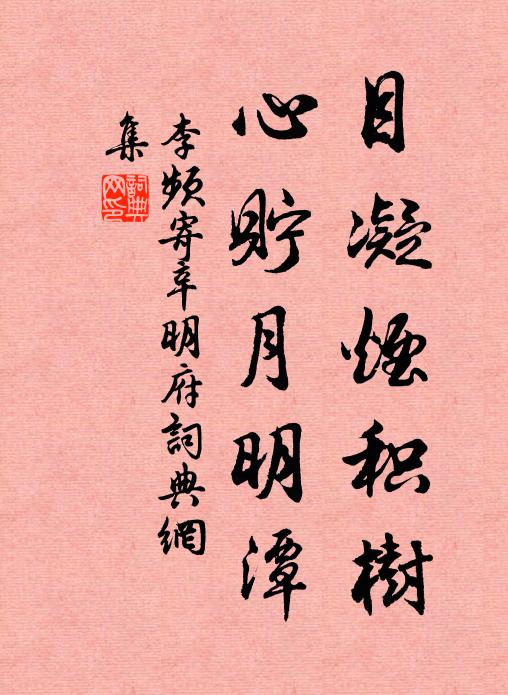 目凝煙积樹
心貯月明潭
李频寄辛明府詞典網
集
詞典网印